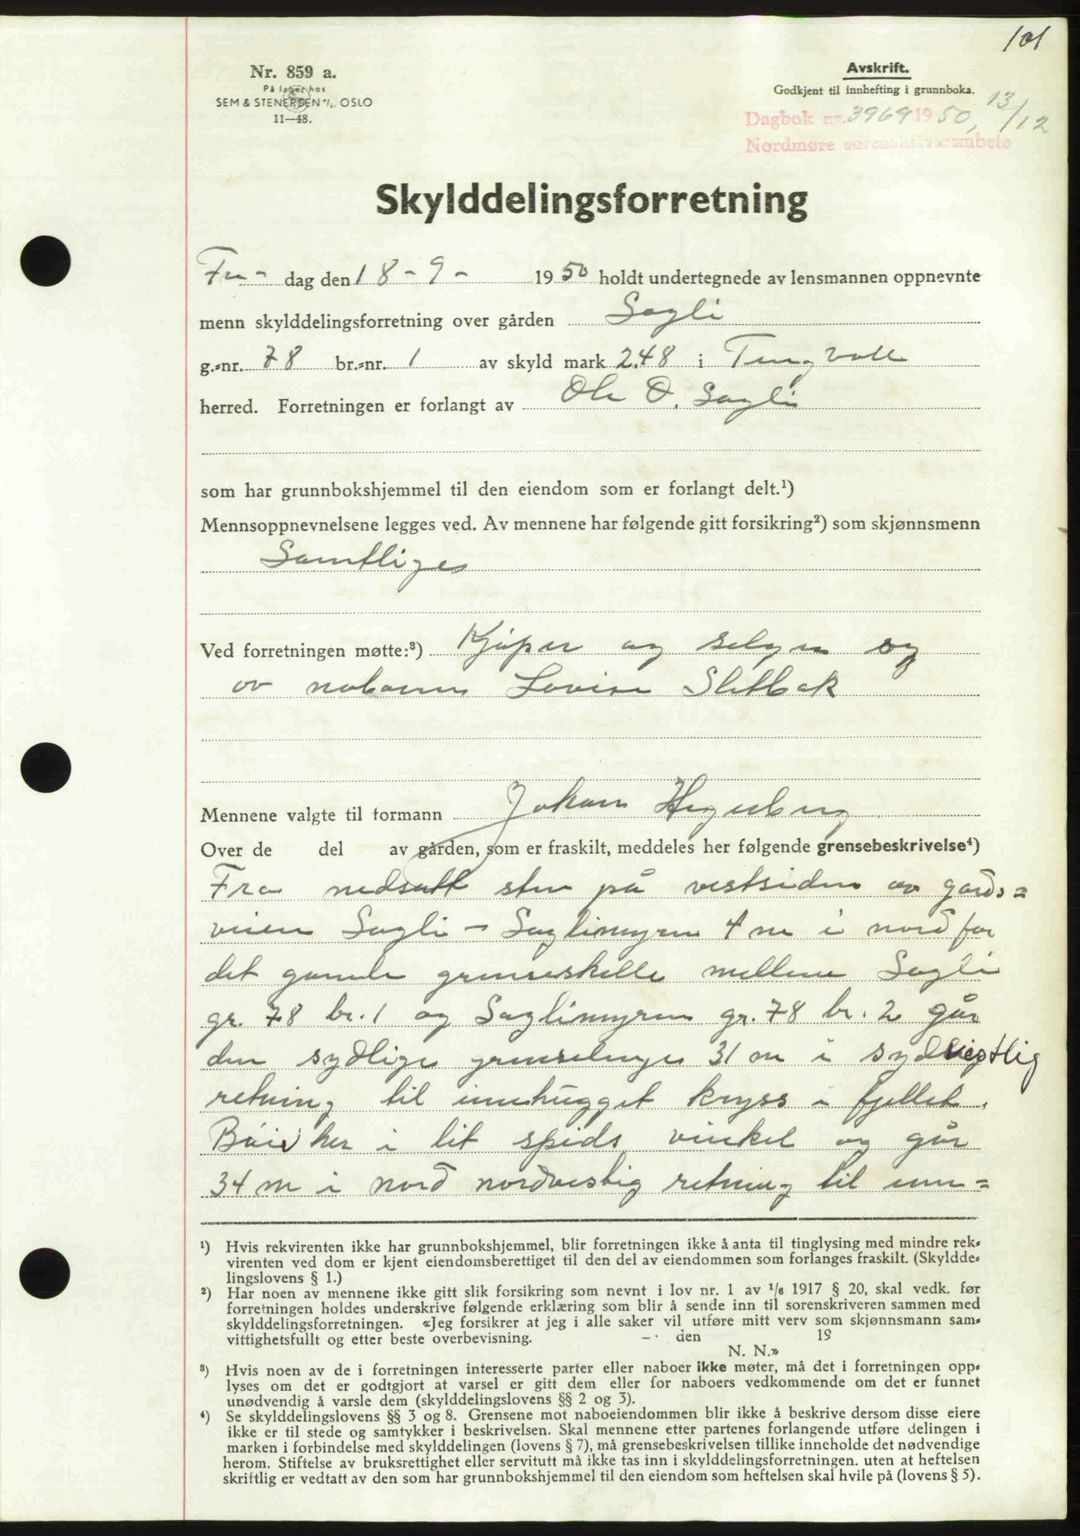 101
Nr. 859 a.
På lager hos
SEM & STENERSEN A/S, OSLO
11—48.
Avskrift.
Godkjent til innhefting i grunnboka.
Dagbok nr. 3969 1950, 13/12
Nordmøre sorenskriverembete
Skylddelingsforretning
Fre- dag den 18-9- 1950 holdt undertegnede av lensmannen oppnevnte
menn skylddelingsforretning over gården Sagli
g.-nr. 78 br.-nr. 1 av skyld mark 2,48 i Tingvoll
herred. Forretningen er forlangt av Ole O. Sagli
som har grunnbokshjemmel til den eiendom som er forlangt delt.¹)
Mennsoppnevnelsene legges ved. Av mennene har følgende gitt forsikring²) som skjønnsmenn
Samtliges
Ved forretningen møtte:³) Kjøper og selgr og
av naboene Lovise Sletbak
Mennene valgte til formann Johan Hegerberg
Over de del av gården, som er fraskilt, meddeles her følgende grensebeskrivelse⁴)
Fra nedsatt sten på vestsiden av gards=
veien Sagli – Saglimyren 4 m i nord for
det gamle grenseskelle mellem Sagli
gr. 78 br. 1 og Saglimyren gr. 78 br. 2 går
den sydlige grenselinje 31 m i sydvestlig
retning til innhugget kryss i fjellet.
Bøier her i lit spids vinkel og går
34 m i nord nordvestlig retning til inn=
¹) Hvis rekvirenten ikke har grunnbokshjemmel, blir forretningen ikke å anta til tinglysing med mindre rek-
virenten ved dom er kjent eiendomsberettiget til den del av eiendommen som forlanges fraskilt. (Skyldde-
lingslovens § 1.)
²) Har noen av mennene ikke gitt slik forsikring som nevnt i lov nr. 1 av 1/6 1917 § 20, skal vedk. før
forretningen holdes underskrive følgende erklæring som blir å sende inn til sorenskriveren sammen med
skylddelingsforretningen. «Jeg forsikrer at jeg i alle saker vil utføre mitt verv som skjønnsmann sam-
vittighetsfullt og etter beste overbevisning. — den 19
N. N.»
³) Hvis noen av de i forretningen interesserte parter eller naboer ikke møter, må det i forretningen opp-
lyses om det er godtgjort at varsel er gitt dem eller for naboers vedkommende om det er funnet
unødvendig å varsle dem (skylddelingslovens §§ 2 og 3).
⁴) Se skylddelingslovens §§ 3 og 8. Grensene mot naboeiendommen blir ikke å beskrive dersom disse eiere
ikke er til stede og samtykker i beskrivelsen. Skal mennene etter partenes forlangende utføre delingen i
marken i forbindelse med skylddelingen (lovens § 7), må grensebeskrivelsen tillike inneholde det nødvendige
herom. Stiftelse av bruksrettighet eller servitutt må ikke tas inn i skylddelingsforretningen. uten at heftelsen
skriftlig er vedtatt av den som har grunnbokshjemmel til den eiendom som heftelsen skal hvile på (lovens § 5).